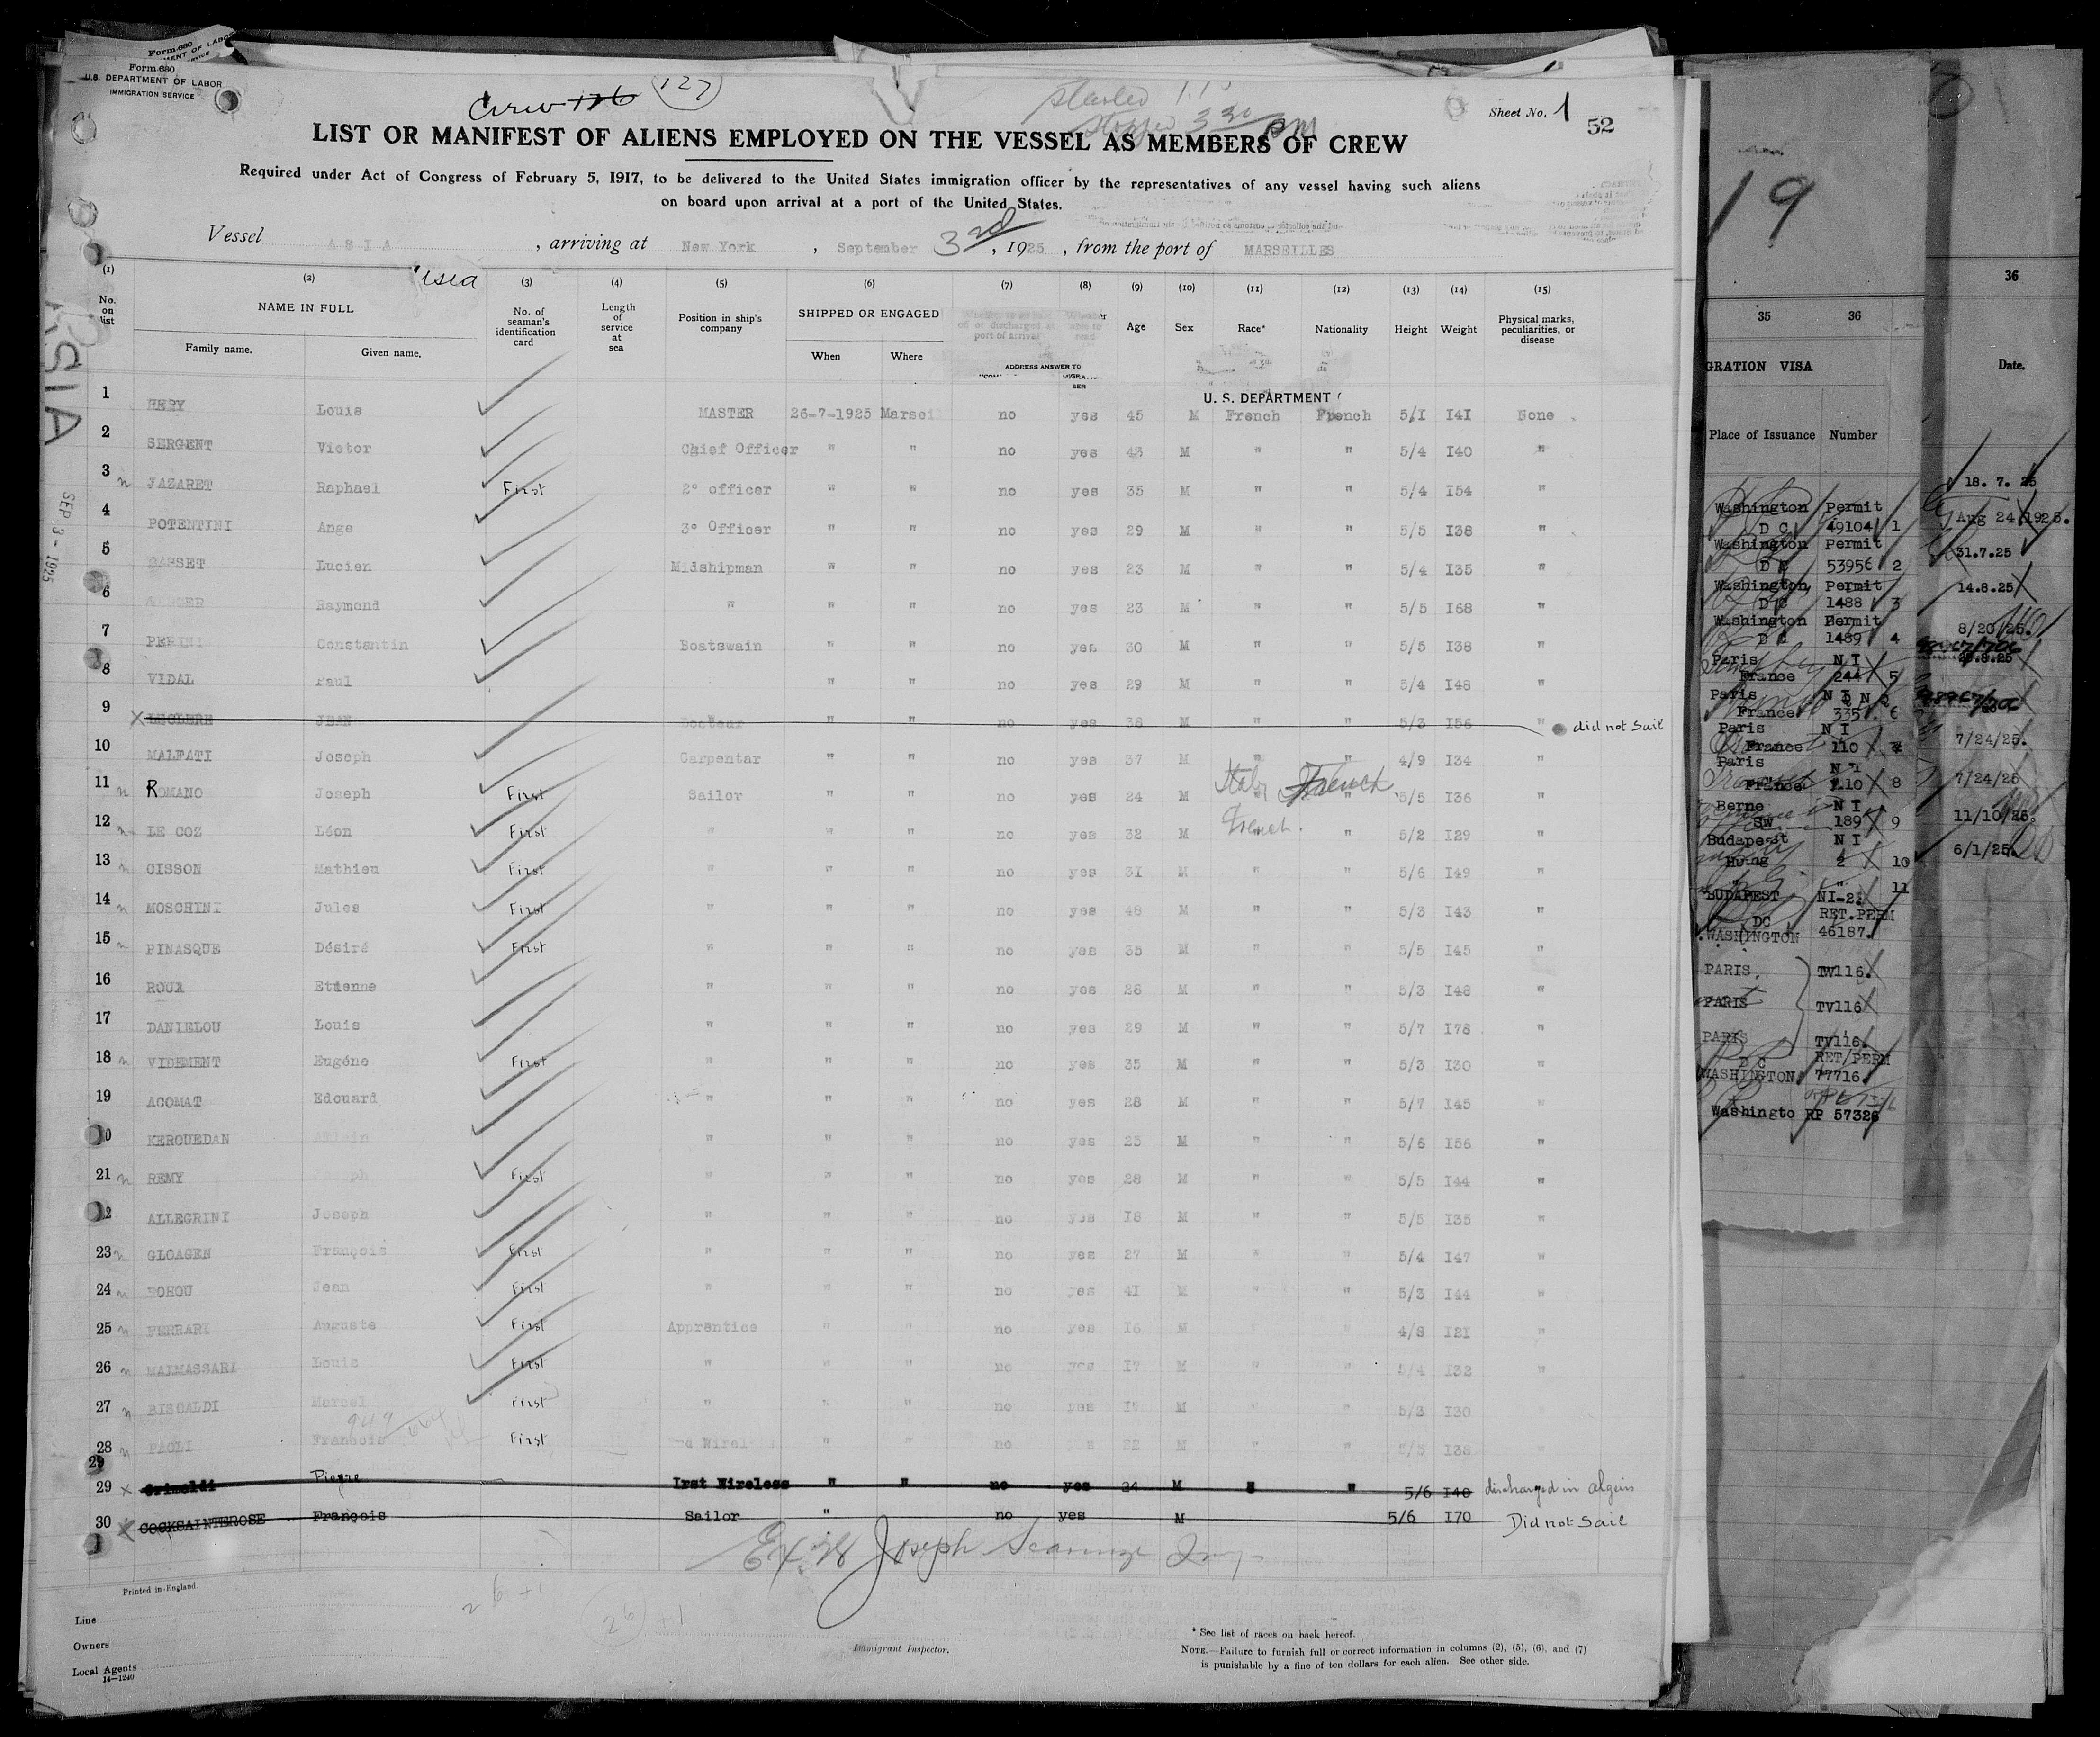 Form 680
U.S. DEPARTMENT OF LABOR
IMMIGRATION SERVICE
Crew 126 127
Started
Stopped 3 30 PM
Sheet No. 1
52
LIST OR MANIFEST OF ALIENS EMPLOYED ON THE VESSEL AS MEMBERS OF CREW
Required under Act of Congress of February 5, 1917, to be delivered to the United States immigration officer by the representatives of any vessel having such aliens
on board upon arrival at a port of the United States.
Vessel ASIA, arriving at New York, September 3rd, 1925, from the port of MARSEILLES
ASIA
SEP 3 - 1925
(1) (2) (3) (4) (5) (6) (7) (8) (9) (10) (11) (12) (13) (14) (15)
No. on list
NAME IN FULL
Family name.
Given name.
No. of seaman's identification card
Length of service at sea
Position in ship's company
SHIPPED OR ENGAGED
When
Where
Age
Sex
Race*
Nationality
Height
Weight
Physical marks, peculiarities, or disease
ADDRESS ANSWER TO
U. S. DEPARTMENT
1 Louis MASTER 26-7-1925 Marseil no yes 45 M French French 5/1 141 None
2 SERGENT Victor Chief Officer " " no yes 43 M " " 5/4 140 "
3 JAZARET Raphael First 2° officer " " no yes 35 M " " 5/4 154 "
4 POTENTINI Ange 3° Officer " " no yes 29 M " " 5/5 138 "
5 Lucien Midshipman " " no yes 23 M " " 5/4 135 "
6 Raymond " " " no yes 23 M " " 5/5 168 "
7 Constantin Boatswain " " no yes 30 M " " 5/5 138 "
8 VIDAL Paul " " no yes 29 M " " 5/4 148 "
9 LECLERE JEAN " " no yes 38 M " " 5/3 156 " did not sail
10 MALFATI Joseph Carpentar " " no yes 37 M " " 4/9 134 "
11 ROMANO Joseph First Sailor " " no yes 24 M Italy French " 5/5 136 "
12 LE COZ Léon First " " " no yes 32 M French. " 5/2 129 "
13 CISSON Mathieu First " " " no yes 31 M " " 5/6 149 "
14 MOSCHINI Jules First " " " no yes 48 M " " 5/3 143 "
15 PINASQUE Désiré First " " " no yes 35 M " " 5/5 145 "
16 ROUX Etienne " " " no yes 28 M " " 5/3 148 "
17 DANIELOU Louis " " " no yes 29 M " " 5/7 178 "
18 VIDEMENT Eugéne First " " " no yes 35 M " " 5/3 130 "
19 ACOMAT Edouard " " " no yes 28 M " " 5/7 145 "
20 KEROUEDAN " " " no yes 25 M " " 5/6 156 "
21 REMY First " " " no yes 28 M " " 5/5 144 "
22 ALLEGRINI Joseph " " " no yes 18 M " " 5/5 135 "
23 GLOAGEN François First " " " no yes 27 M " " 5/4 147 "
24 Jean First " " " no yes 41 M " " 5/3 144 "
25 FERRARI Auguste First Apprentice " " no yes 16 M 4/8 121 "
26 MALMASSARI Louis First " " " no yes 17 M " " 5/4 132 "
27 BISCALDI Marcel First " " " no yes M " 5/3 130
28 PAOLI François First " " no 22 M " " 5/5 138
29 Grimaldi Pierre 1rst Wireless " " no yes 24 M " " 5/6 140 discharged in algeirs
30 COCKSAINTEROSE François Sailor " no yes M 5/6 170 Did not sail
Joseph
26 +1
26 +1
Printed in England.
Line
Owners
Local Agents
14—1240
Immigrant Inspector.
* See list of races on back hereof.
NOTE.—Failure to furnish full or correct information in columns (2), (5), (6), and (7)
is punishable by a fine of ten dollars for each alien. See other side.
19
36
35 36
GRATION VISA
Date.
Place of Issuance Number
18. 7. 25
Washington Permit
D C 49104 1 Aug 24.1925.
Washington Permit 31.7.25
D C 53956 2
Washington Permit 14.8.25
D C 1488 3
Washington Permit 8/20/25.
D C 1489 4
Paris N I
France 244 5
Paris N I
France 335 6
Paris N I 7/24/25.
France 110
Paris N I 7/24/25
France 110 8
Berne N I 11/10/25.
SW 189 9
Budapest N I 6/1/25.
Hung 2 10
BUDAPEST NI-2 11
DC RET.PERM
WASHINGTON 46187.
PARIS. TV116.
PARIS TV116
PARIS TV116.
D C RET/PERM
WASHINGTON 77716
Washingto RP 57326